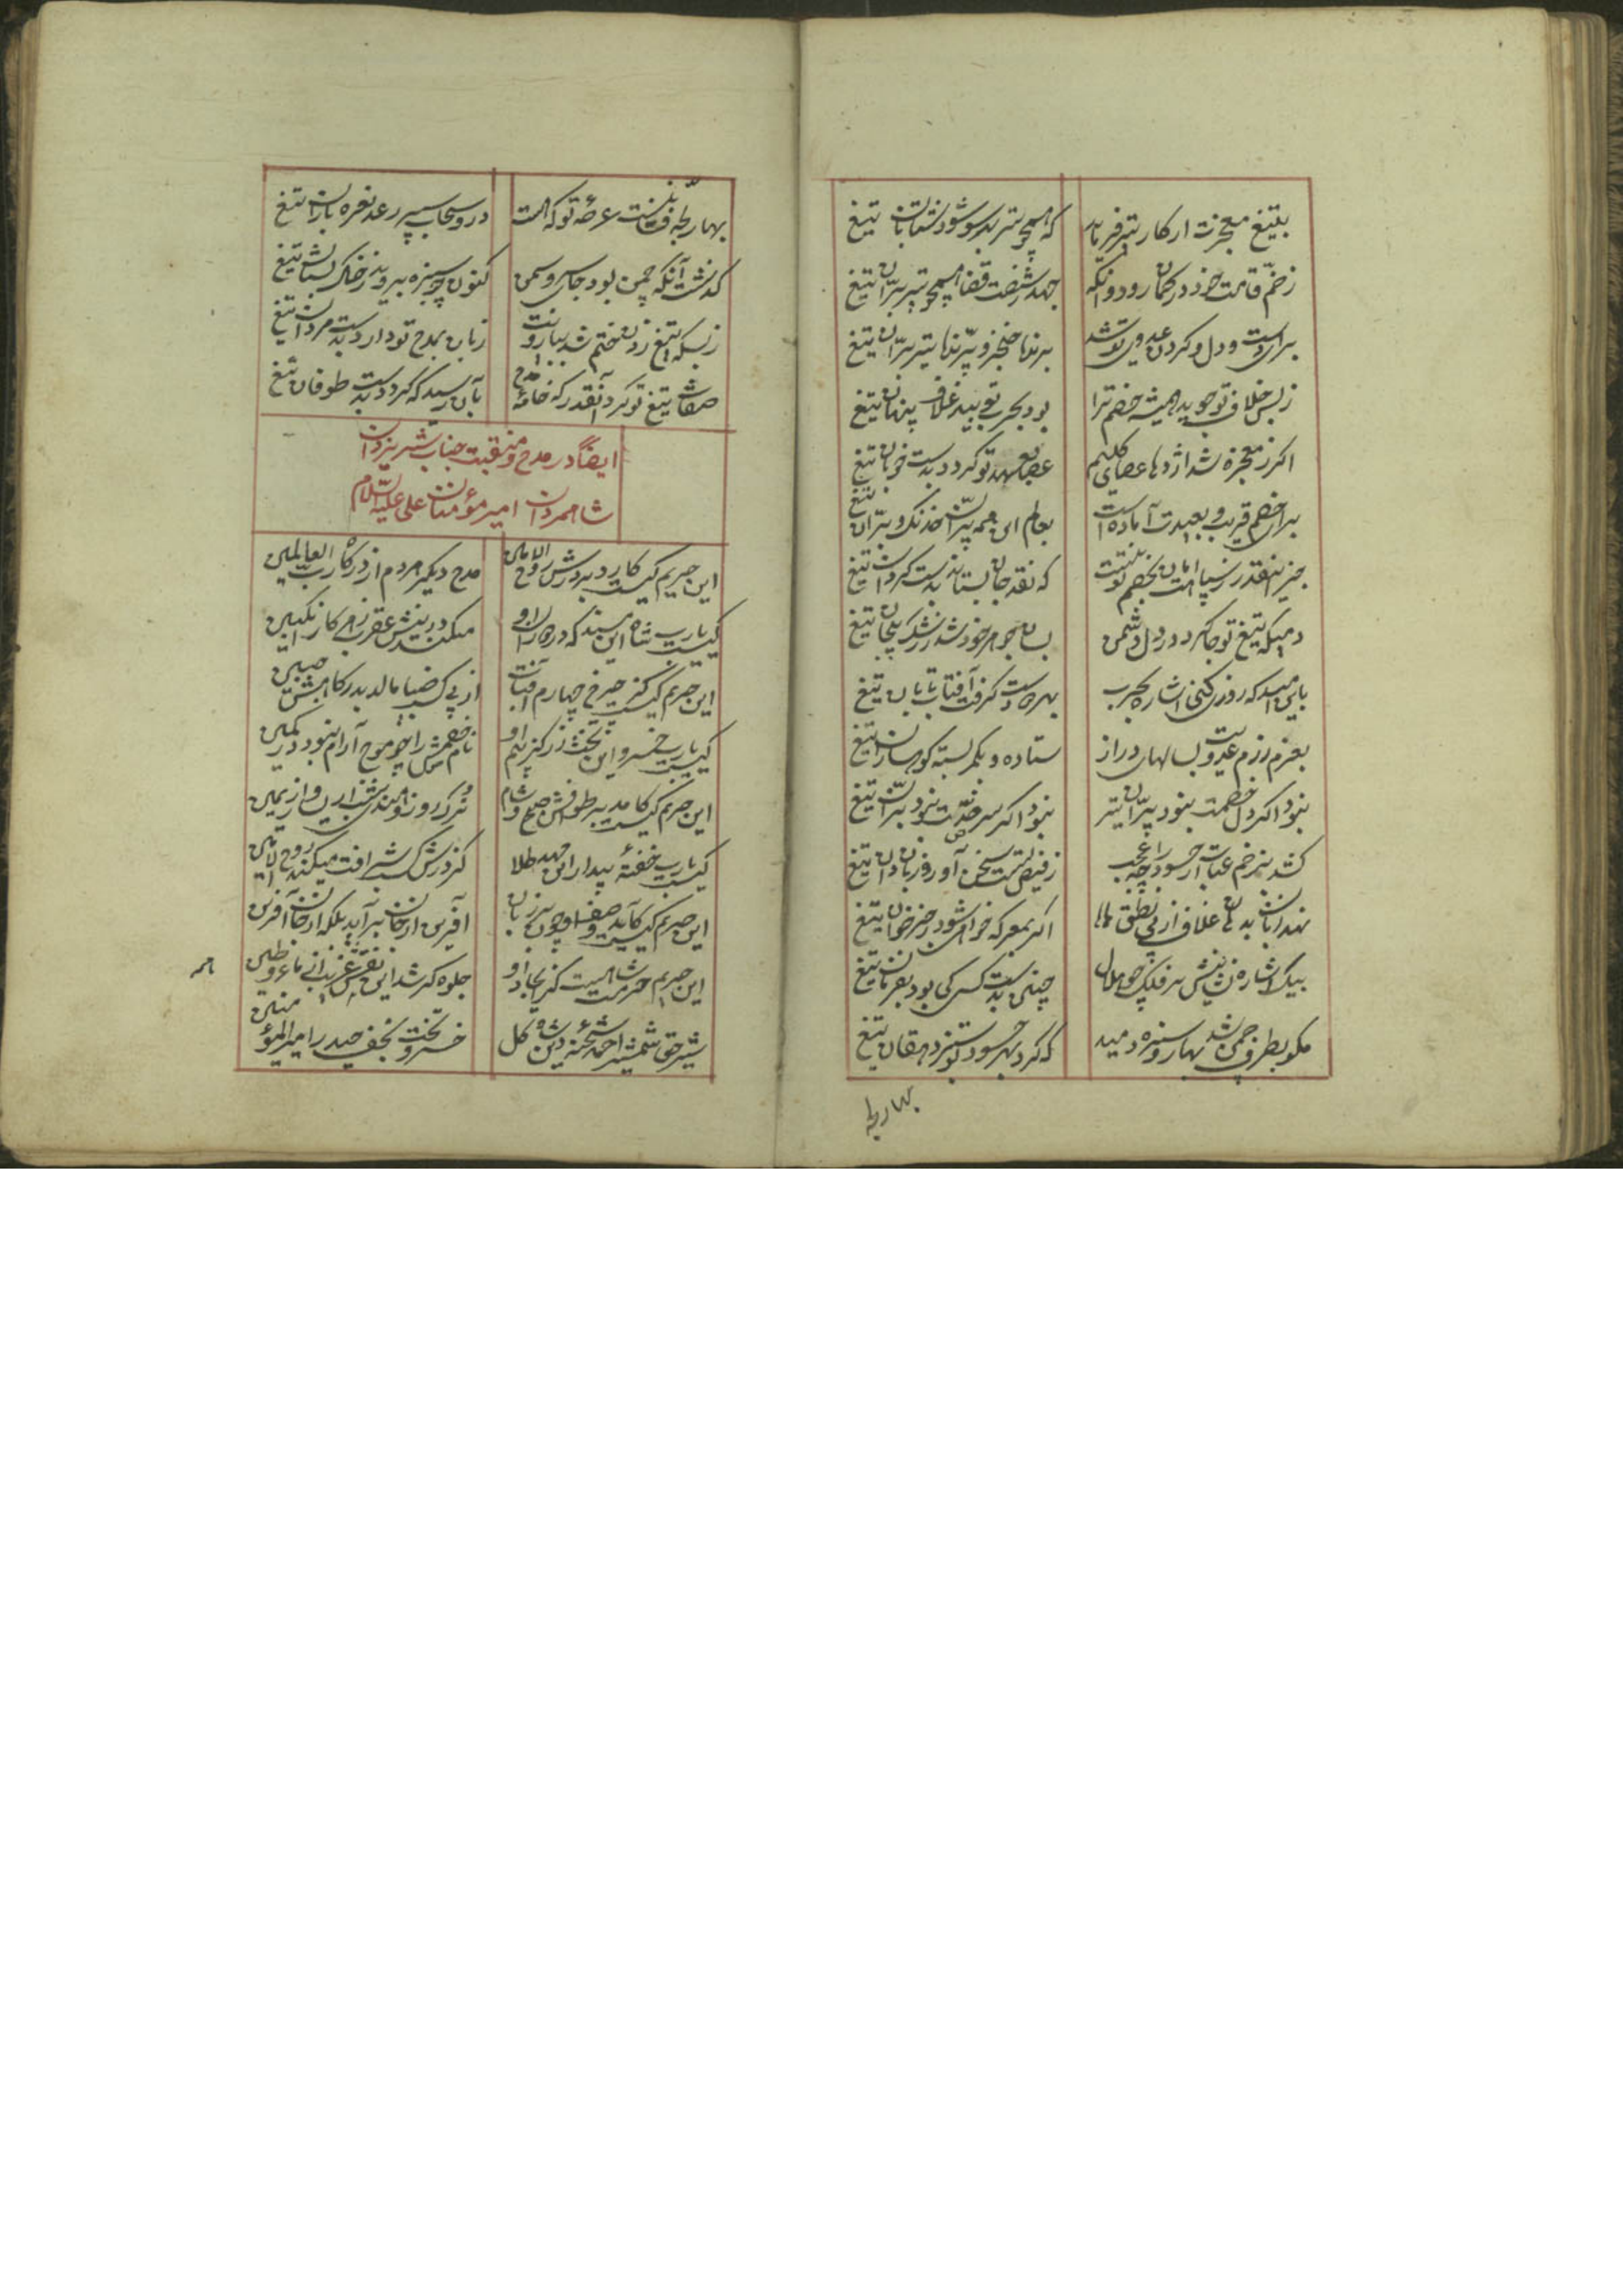 بتیغ معجزت ار کار تیر فرماید
که همچو تیر بهر سو شود شتابان تیغ
زخم قامت خود در کمان رود و آنکه
جهد ز شصت قضا همچو تیر پران تیغ
برای دست و دل و گردن عدوی تو شد
برنده خنجر و پرنده تیر و بران تیغ
ز بس خلاف تو جوید همیشه خصم ترا
بود بحرب تو بیند غلاف پنهان تیغ
اگر ز معجزه شد اژدها عصای کلیم
عصا بعهد تو گردد بدست خوبان تیغ
برای خصم قریب و بعیدت آماده است
بعالم این همه پران خدنگ و بران تیغ
جز اینقدر ز سپاهت امان بخصم تو نیست
که نقد جان بستاند بدست گردان تیغ
دمیکه تیغ تو جا کرد در دل دشمن
بسان جوهر خود شد ز رشک پیچان تیغ
باین امید که روزی کنی اشاره بحرب
بهر دست گرفت آفتاب تابان تیغ
بعزم رزم عدویت بسالهای دراز
ستاده و بکمر بسته کوهساران تیغ
نبود اگر دل خصمت نبود پران تیر
نبود اگر سر ضدت نبود بران تیغ
کشد بزخم عتاب ار حسود را چه عجب
ز فیض تست سخن آور و زبان دان تیغ
نهد زبان بدهان غلاف از پی نطق
اگر بمعرکه خواهی شود رجز خوان تیغ
بیک اشاره نشانیش بر فلک چو هلال
چنین بدست کسی کی بود بفرمان تیغ
مگو بطرف چمن شد بهار و سبزه دمید
که کرد بهر حسود تو سبز دهقان تیغ
بهار لجه
بهار لجه فنا نیست عرصهٔ تو که هست
درو سحاب سپر رعد نعره باران تیغ
گذشت آنکه چمن بود جای سرو سمن
کنون چو سبزه بروید ز خاک بستان تیغ
ز بسکه تیغ زدن ختم شد ببازویت
زبان بمدح تو دارد بدست مردان تیغ
صفات تیغ تو کرد آنقدر که خامهٔ مدح
بآن رسید که گردد بدست طوفان تیغ
ایضاً در مدح و منقبت جناب شیر یزدان
شاه مردان امیر مؤمنان علی علیه السلام
این حریم کیست کارد بر درش روح الامین
مدح دیگر هر دم از درگاه رب العالمین
کیست یارب شاه این مسند که در دوران او
میکند در نیش عقرب زهر کار انگبین
این حریم کیست کز چرخ چهارم آفتاب
از پی کسب ضیا مالد بدرگاهش جبین
کیست یارب خسرو این تخت زر کز بیم او
نام خصمش را چو موج آرام نبود در نگین
این حریم کیست کامد بر طوافش صبح و شام
ترک روز و هندوی شب از یسار و از یمین
کیست یارب خفتهٔ بیدار این مهد طلا
کز درش کسب شرافت میکند روح الامین
این حریم کیست کآید وصف او چون بر زبان
آفرین از جان برآید بلکه از جان آفرین
این حریم حرمت شاهیست کز ایجاد او
جلوه گر شد این نقوش غریب از ماء و طین
شیر حق شمشیر احمد شحنهٔ دین شاه کل
خسرو تخت نجف حیدر امیرالمؤمنین